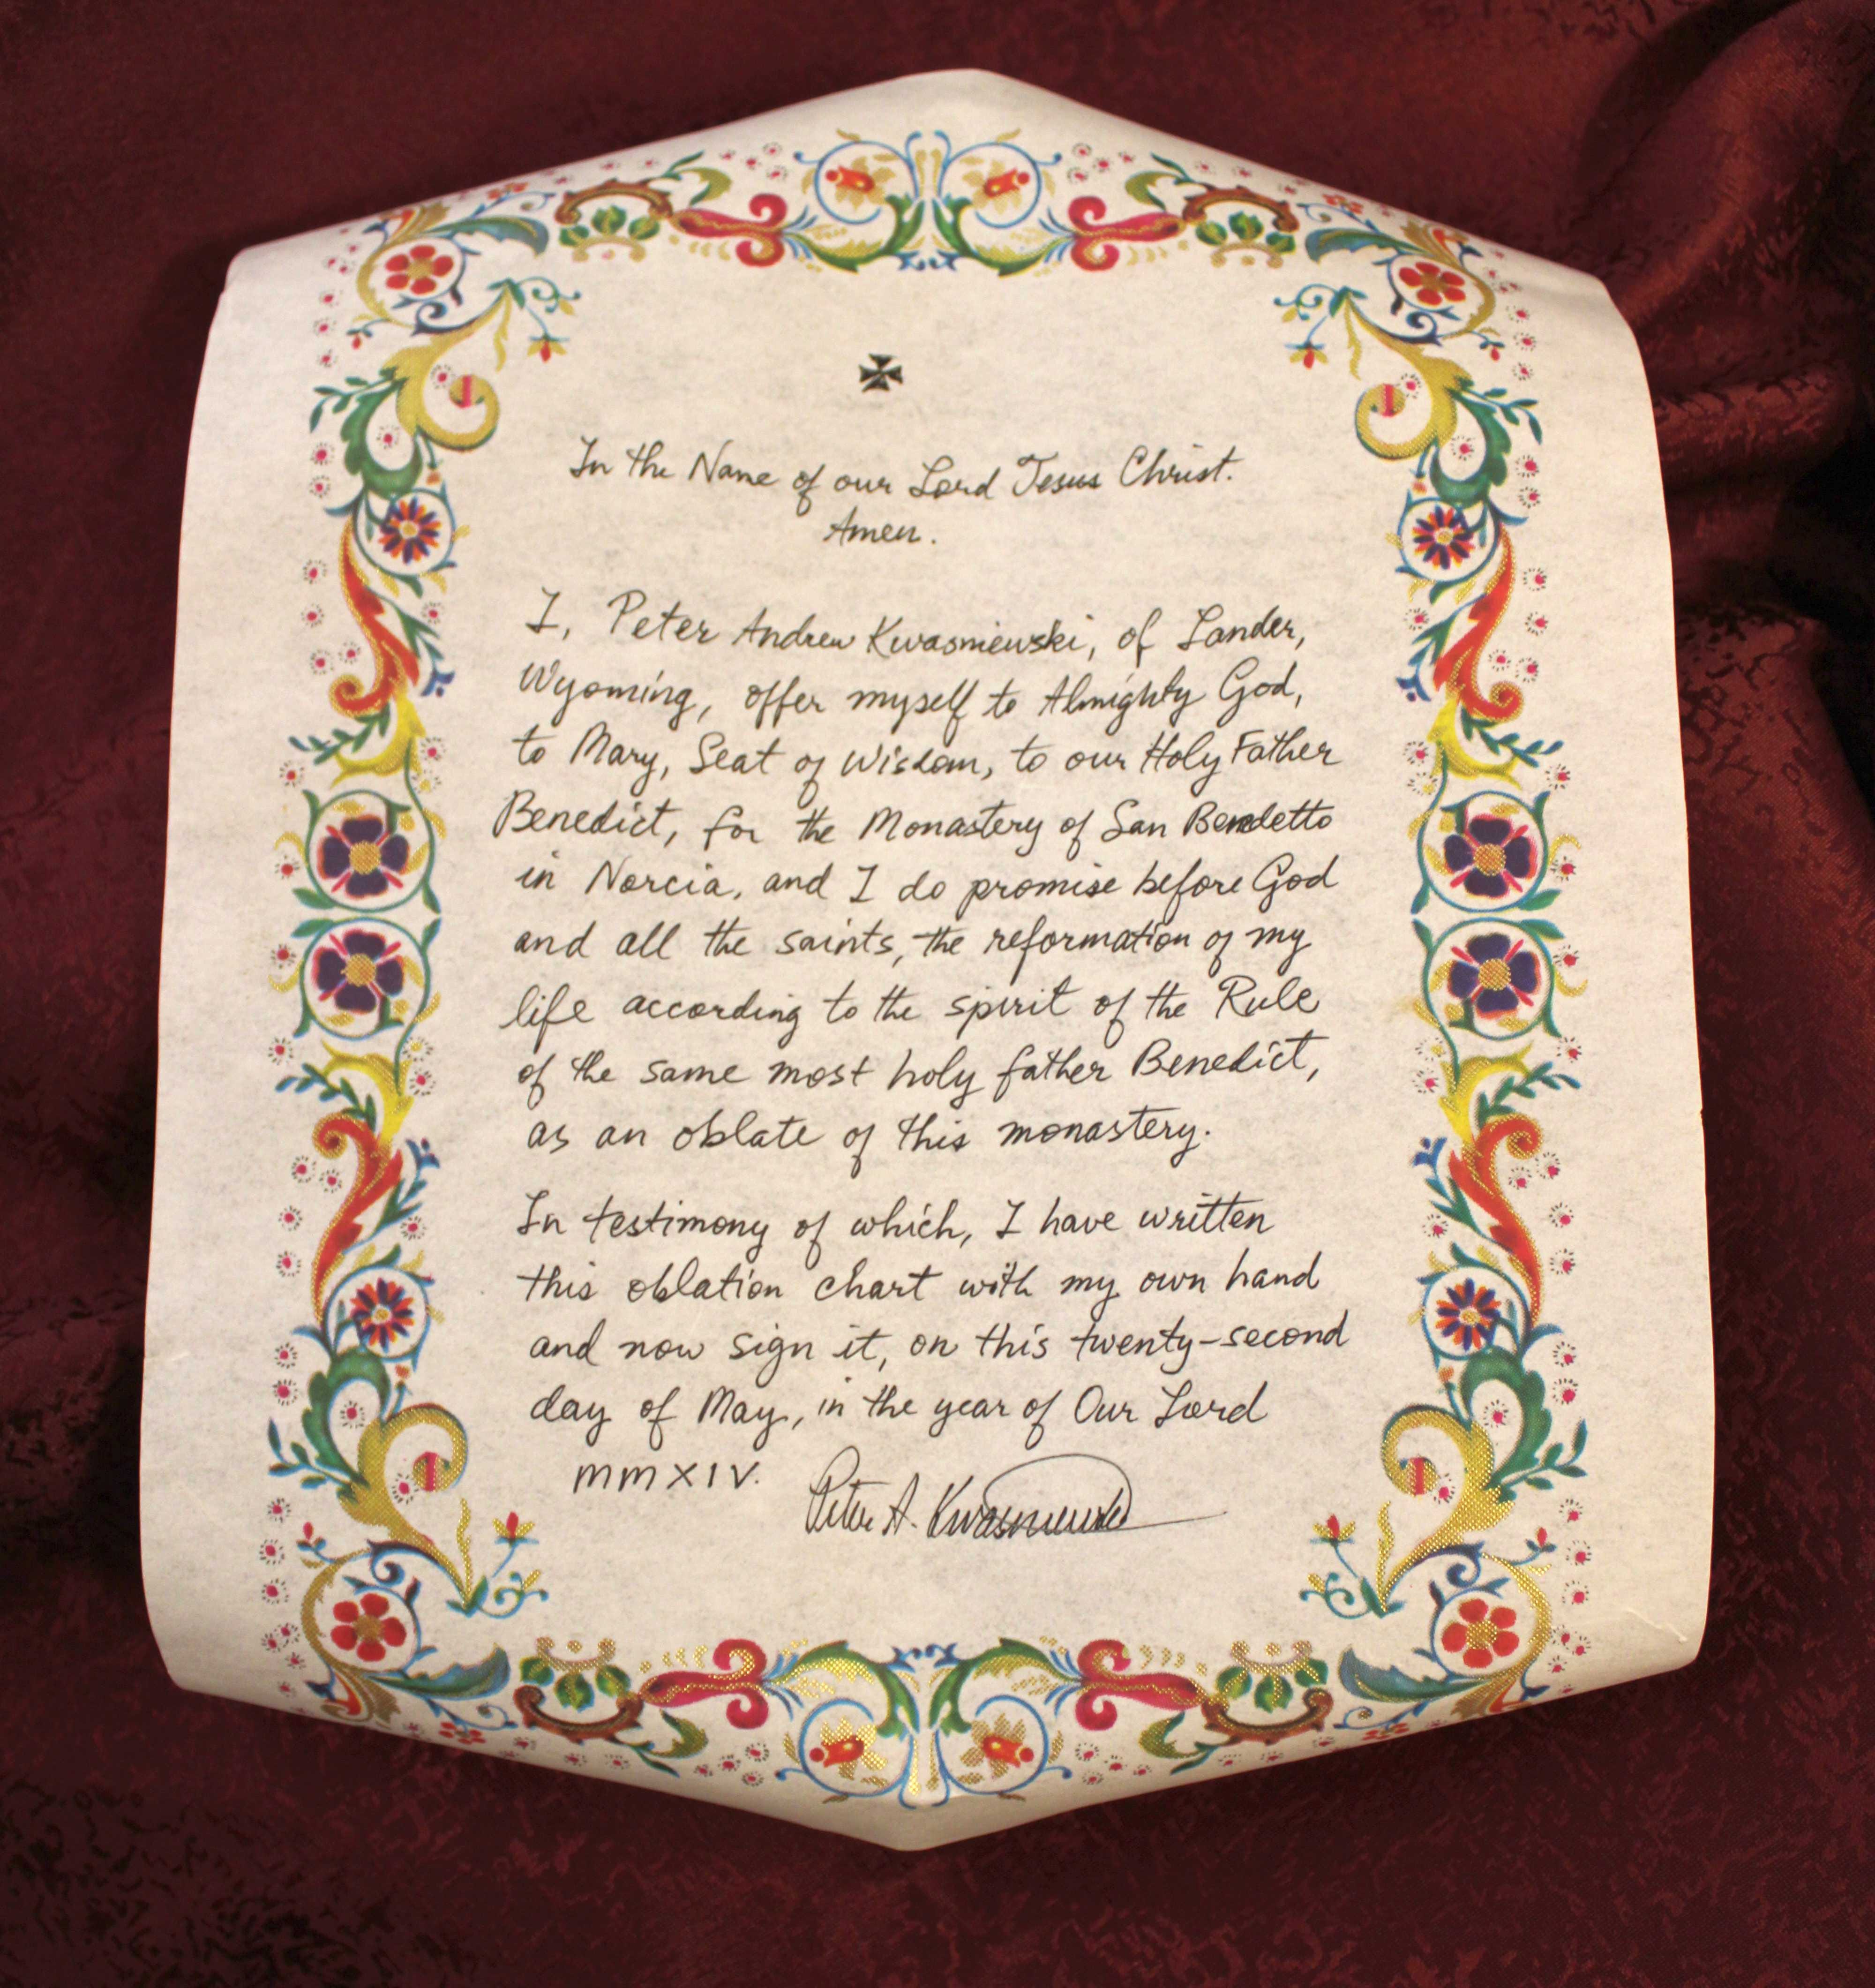 In the Name of our Lord Jesus Christ.
Amen.
I, Peter Andrew Kwasniewski, of Lander,
Wyoming, offer myself to Almighty God,
to Mary, Seat of Wisdom, to our Holy Father
Benedict, for the Monastery of San Benedetto
in Norcia, and I do promise before God
and all the saints, the reformation of my
life according to the spirit of the Rule
of the same most holy father Benedict,
as an oblate of this monastery.
In testimony of which, I have written
this oblation chart with my own hand
and now sign it, on this twenty-second
day of May, in the year of Our Lord
MMXIV. Peter A. Kwasniewski